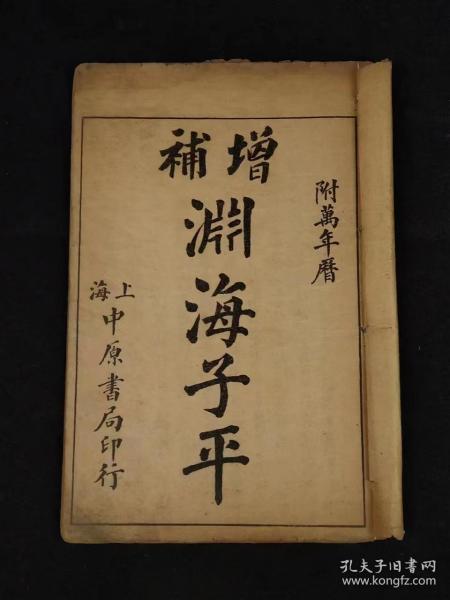 附萬年曆
增補
淵海子平
上海
中原書局印行
孔夫子旧书网
www.kongfz.com